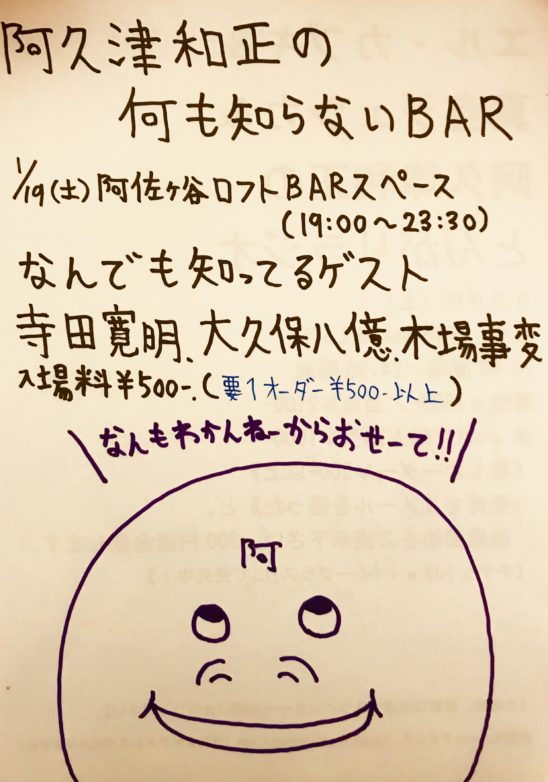 阿久津和正の
何も知らないBAR
1/19(土)阿佐ヶ谷ロフトBARスペース
(19:00〜23:30)
なんでも知ってるゲスト
寺田寛明、大久保八億、木場事変
入場料¥500-.(要1オーダー¥500-以上)
なんもわかんねーからおせーて!!
阿